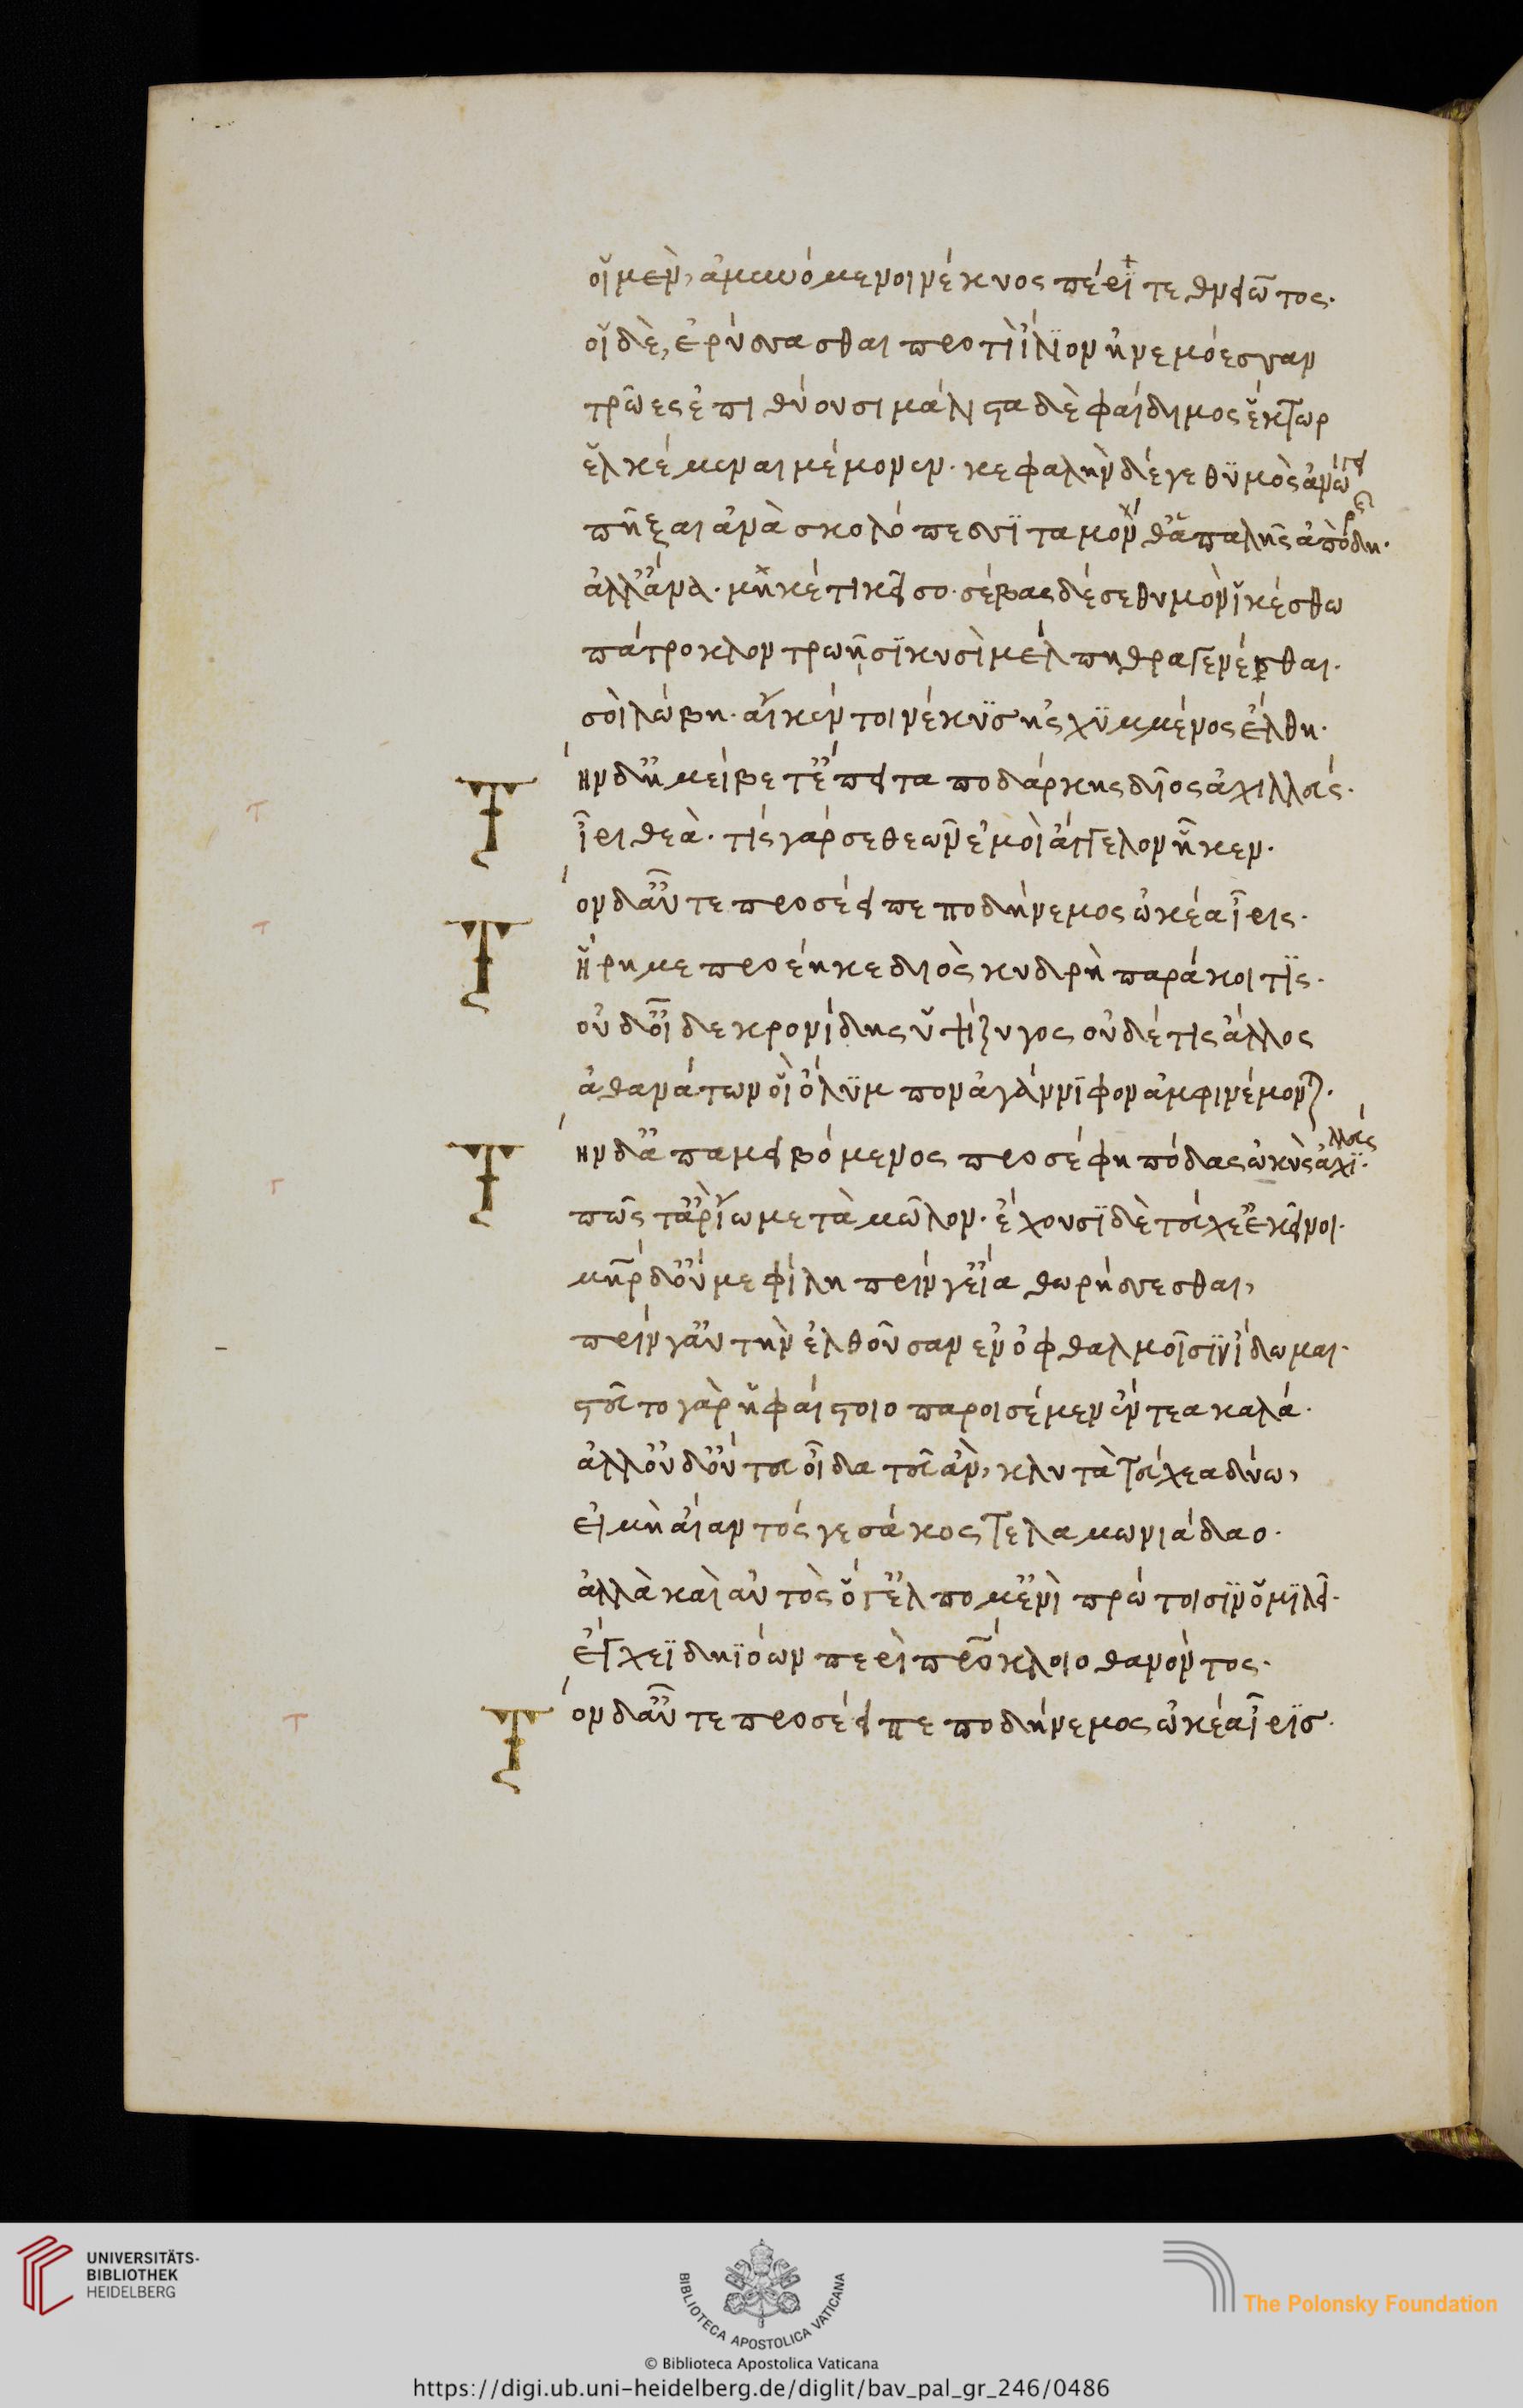 οἵ μὲν, ἀμυνόμενοι νέκυος πέρϊ τεθνειῶτος·
οἵ δὲ, ἐρύσασθαι προτὶ ἴλϊον ἠνεμόεσσαν
τρῶες ἐπιθύουσι μάλιστα δὲ φαίδιμος ἕκτωρ
ἑλκέμεναι μέμονεν· κεφαλὴν δέ γε θϋμὸς ἀνώγει
πῆξαι ἀνὰ σκολόπεσσϊ ταμόνθ' ἁπαλῆς ἀπὸ δειρῆ·
ἀλλ' ἄνα· μὴ κέτι κεῖσο· σέβας δέ σε θυμὸν ἱκέσθω
πάτροκλον τρωῇσϊ κυσὶ μέλπηθρα γενέσθαι·
σοὶ λώβη· αἴ κέν τοι νέκϋς ᾐσχϋμμένος ἔλθη·
Τὴν δ' ἠμείβετ' ἔπειτα ποδάρκης δῖος ἀχιλλεύς·
ἶρι θεὰ· τίς γάρ σε θεῶν ἐμοὶ ἄγγελον ἧκεν·
Τὸν δ' αὖτε προσέειπε ποδήνεμος ὠκέα ἶρις·
ἥρη με προέηκε διὸς κυδρὴ παράκοιτϊς·
οὐδ' οἶδε κρονίδης ὑψίζυγος οὐδέ τις ἄλλος
ἀθανάτων οἳ ὄλϋμπον ἀγάννϊφον ἀμφινέμονται·
Τὴν δ' ἀπαμειβόμενος προσέφη πόδας ὠκὺς ἀχϊλλεύς·
πῶς τ' ἂρ ἴω μετὰ μῶλον· ἔχουσϊ δὲ τεύχε' ἐκεῖνοι·
μήτηρ δ' οὔ με φίλη πρίν γ' εἴα θωρήσσεσθαι,
πρίν γ' αὐτὴν ἐλθοῦσαν ἐν ὀφθαλμοῖσϊν ἴδωμαι·
στεῦτο γὰρ ἡφαίστοιο παροισέμεν ἔντεα καλά·
ἄλλου δ' οὔ τευ οἶδα τεῦ ἂν, κλυτὰ τεύχεα δύω,
εἰ μὴ αἴαντός γε σάκος τελαμωνιάδαο·
ἀλλὰ καὶ αὐτὸς ὅ γ' ἔλπομ' ἐνὶ πρώτοισϊν ὁμϊλεῖ·
ἔγχεϊ δηϊόων περὶ πατρόκλοιο θανόντος·
Τὸν δ' αὖτε προσέειπε ποδήνεμος ὠκέα ἶρϊς·
UNIVERSITÄTS-
BIBLIOTHEK
HEIDELBERG
BIBLIOTECA APOSTOLICA VATICANA
The Polonsky Foundation
© Biblioteca Apostolica Vaticana
https://digi.ub.uni-heidelberg.de/diglit/bav_pal_gr_246/0486